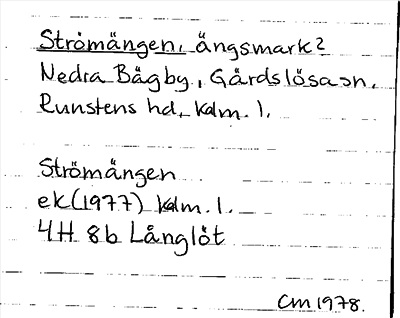 Strömängen, ängsmark?
Nedra Bägby, Gårdslösa sn,
Runstens hd, Kalm. l.
Strömängen
ek (1977) Kalm. l.
4H 8b Långlöt
CM 1978.